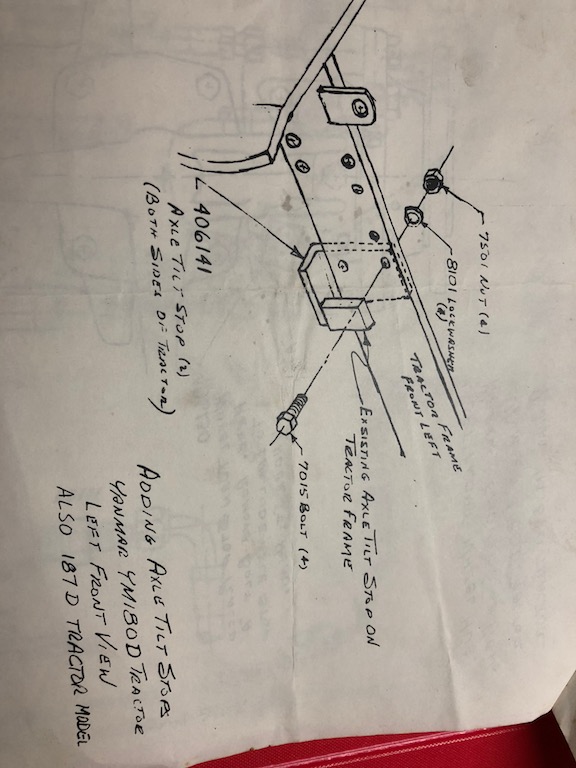 7501 NUT (4)
8101 LOCKWASHER
TRACTOR FRAME
FRONT LEFT
EXSISTING AXLE TILT STOP ON
TRACTOR FRAME
7015 BOLT (4)
406141
AXLE TILT STOP (2)
(BOTH SIDES OF TRACTOR)
ADDING AXLE TILT STOPS
YANMAR YM180D TRACTOR
LEFT FRONT VIEW
ALSO 187 D TRACTOR MODEL